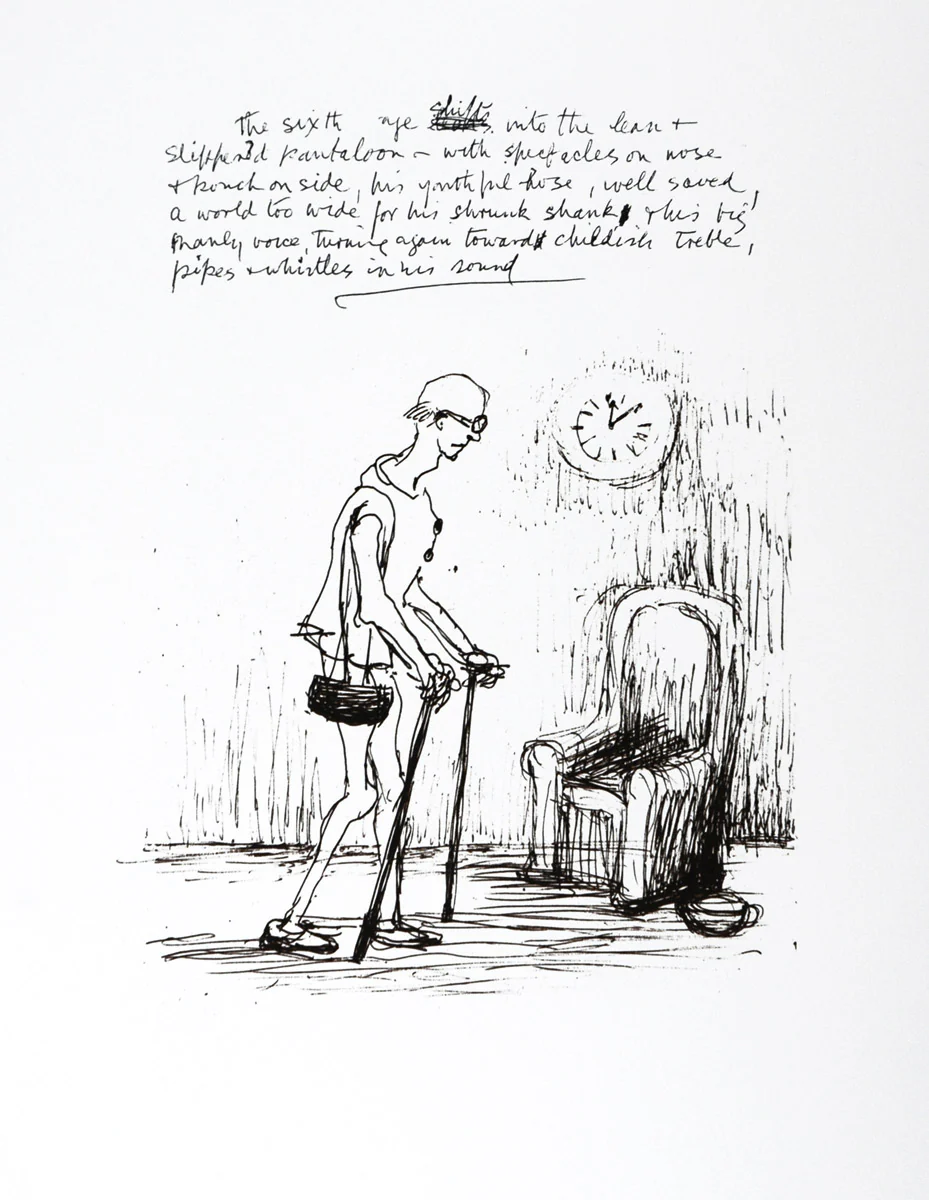 The sixth age shifts into the lean +
slipper'd pantaloon – with spectacles on nose
+ pouch on side, his youthful hose, well saved,
a world too wide for his shrunk shank, + his big
manly voice, turning again toward childish treble,
pipes + whistles in his sound